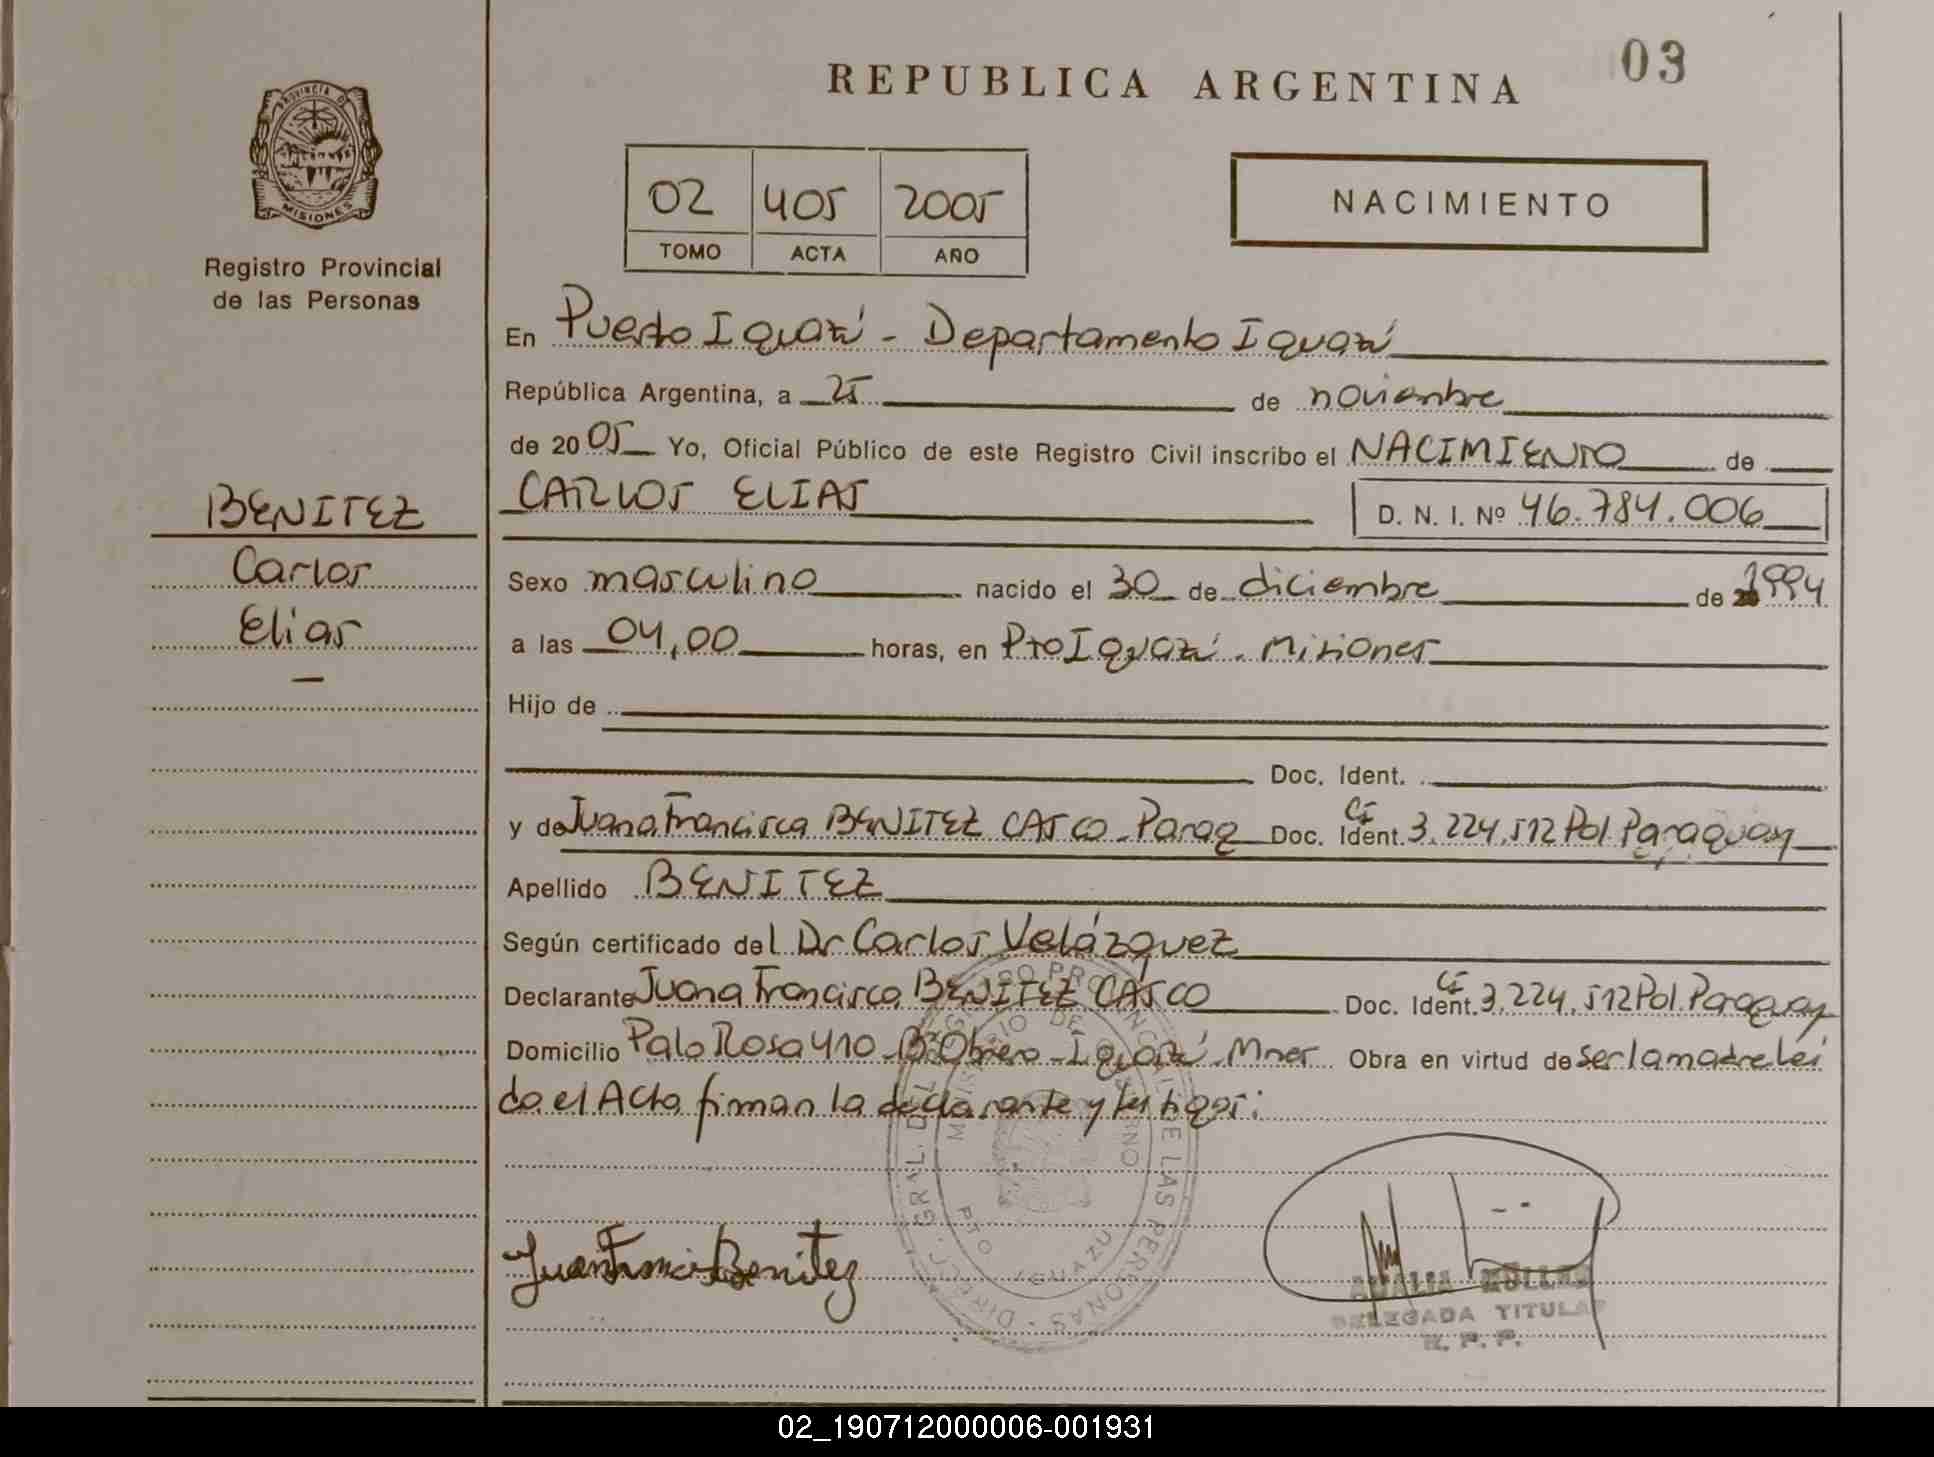 REPUBLICA ARGENTINA
03
PROVINCIA DE
MISIONES
Registro Provincial
de las Personas
02 405 2005
TOMO ACTA AÑO
NACIMIENTO
En Puerto Iguazú - Departamento Iguazú
República Argentina, a 25 de noviembre
de 2005 Yo, Oficial Público de este Registro Civil inscribo el NACIMIENTO de
BENITEZ
Carlos
Elias
CARLOS ELIAS D. N. I. Nº 46.784.006
Sexo masculino nacido el 30 de diciembre de 1994
a las 04,00 horas, en Pto Iguazú - Misiones
Hijo de
Doc. Ident.
y de Juana Francisca BENITEZ CASCO - Parag Doc. Ident. CI 3.224.512 Pol. Paraguay
Apellido BENITEZ
Según certificado del Dr Carlos Velázquez
Declarante Juana Francisca BENITEZ CASCO Doc. Ident. CI 3.224.512 Pol. Paraguay
Domicilio Palo Rosa 410 - Bº Obrero - Iguazú - Mnes Obra en virtud de ser la madre lei
da el Acta firman la declarante y testigos:
DIRECC. GRAL. DEL REGISTRO PROVINCIAL DE LAS PERSONAS
MINISTERIO DE GOBIERNO
PTO IGUAZU
Juana Franci Benitez
AMALIA
DELEGADA TITULAR
R. P. P.
02_190712000006-001931